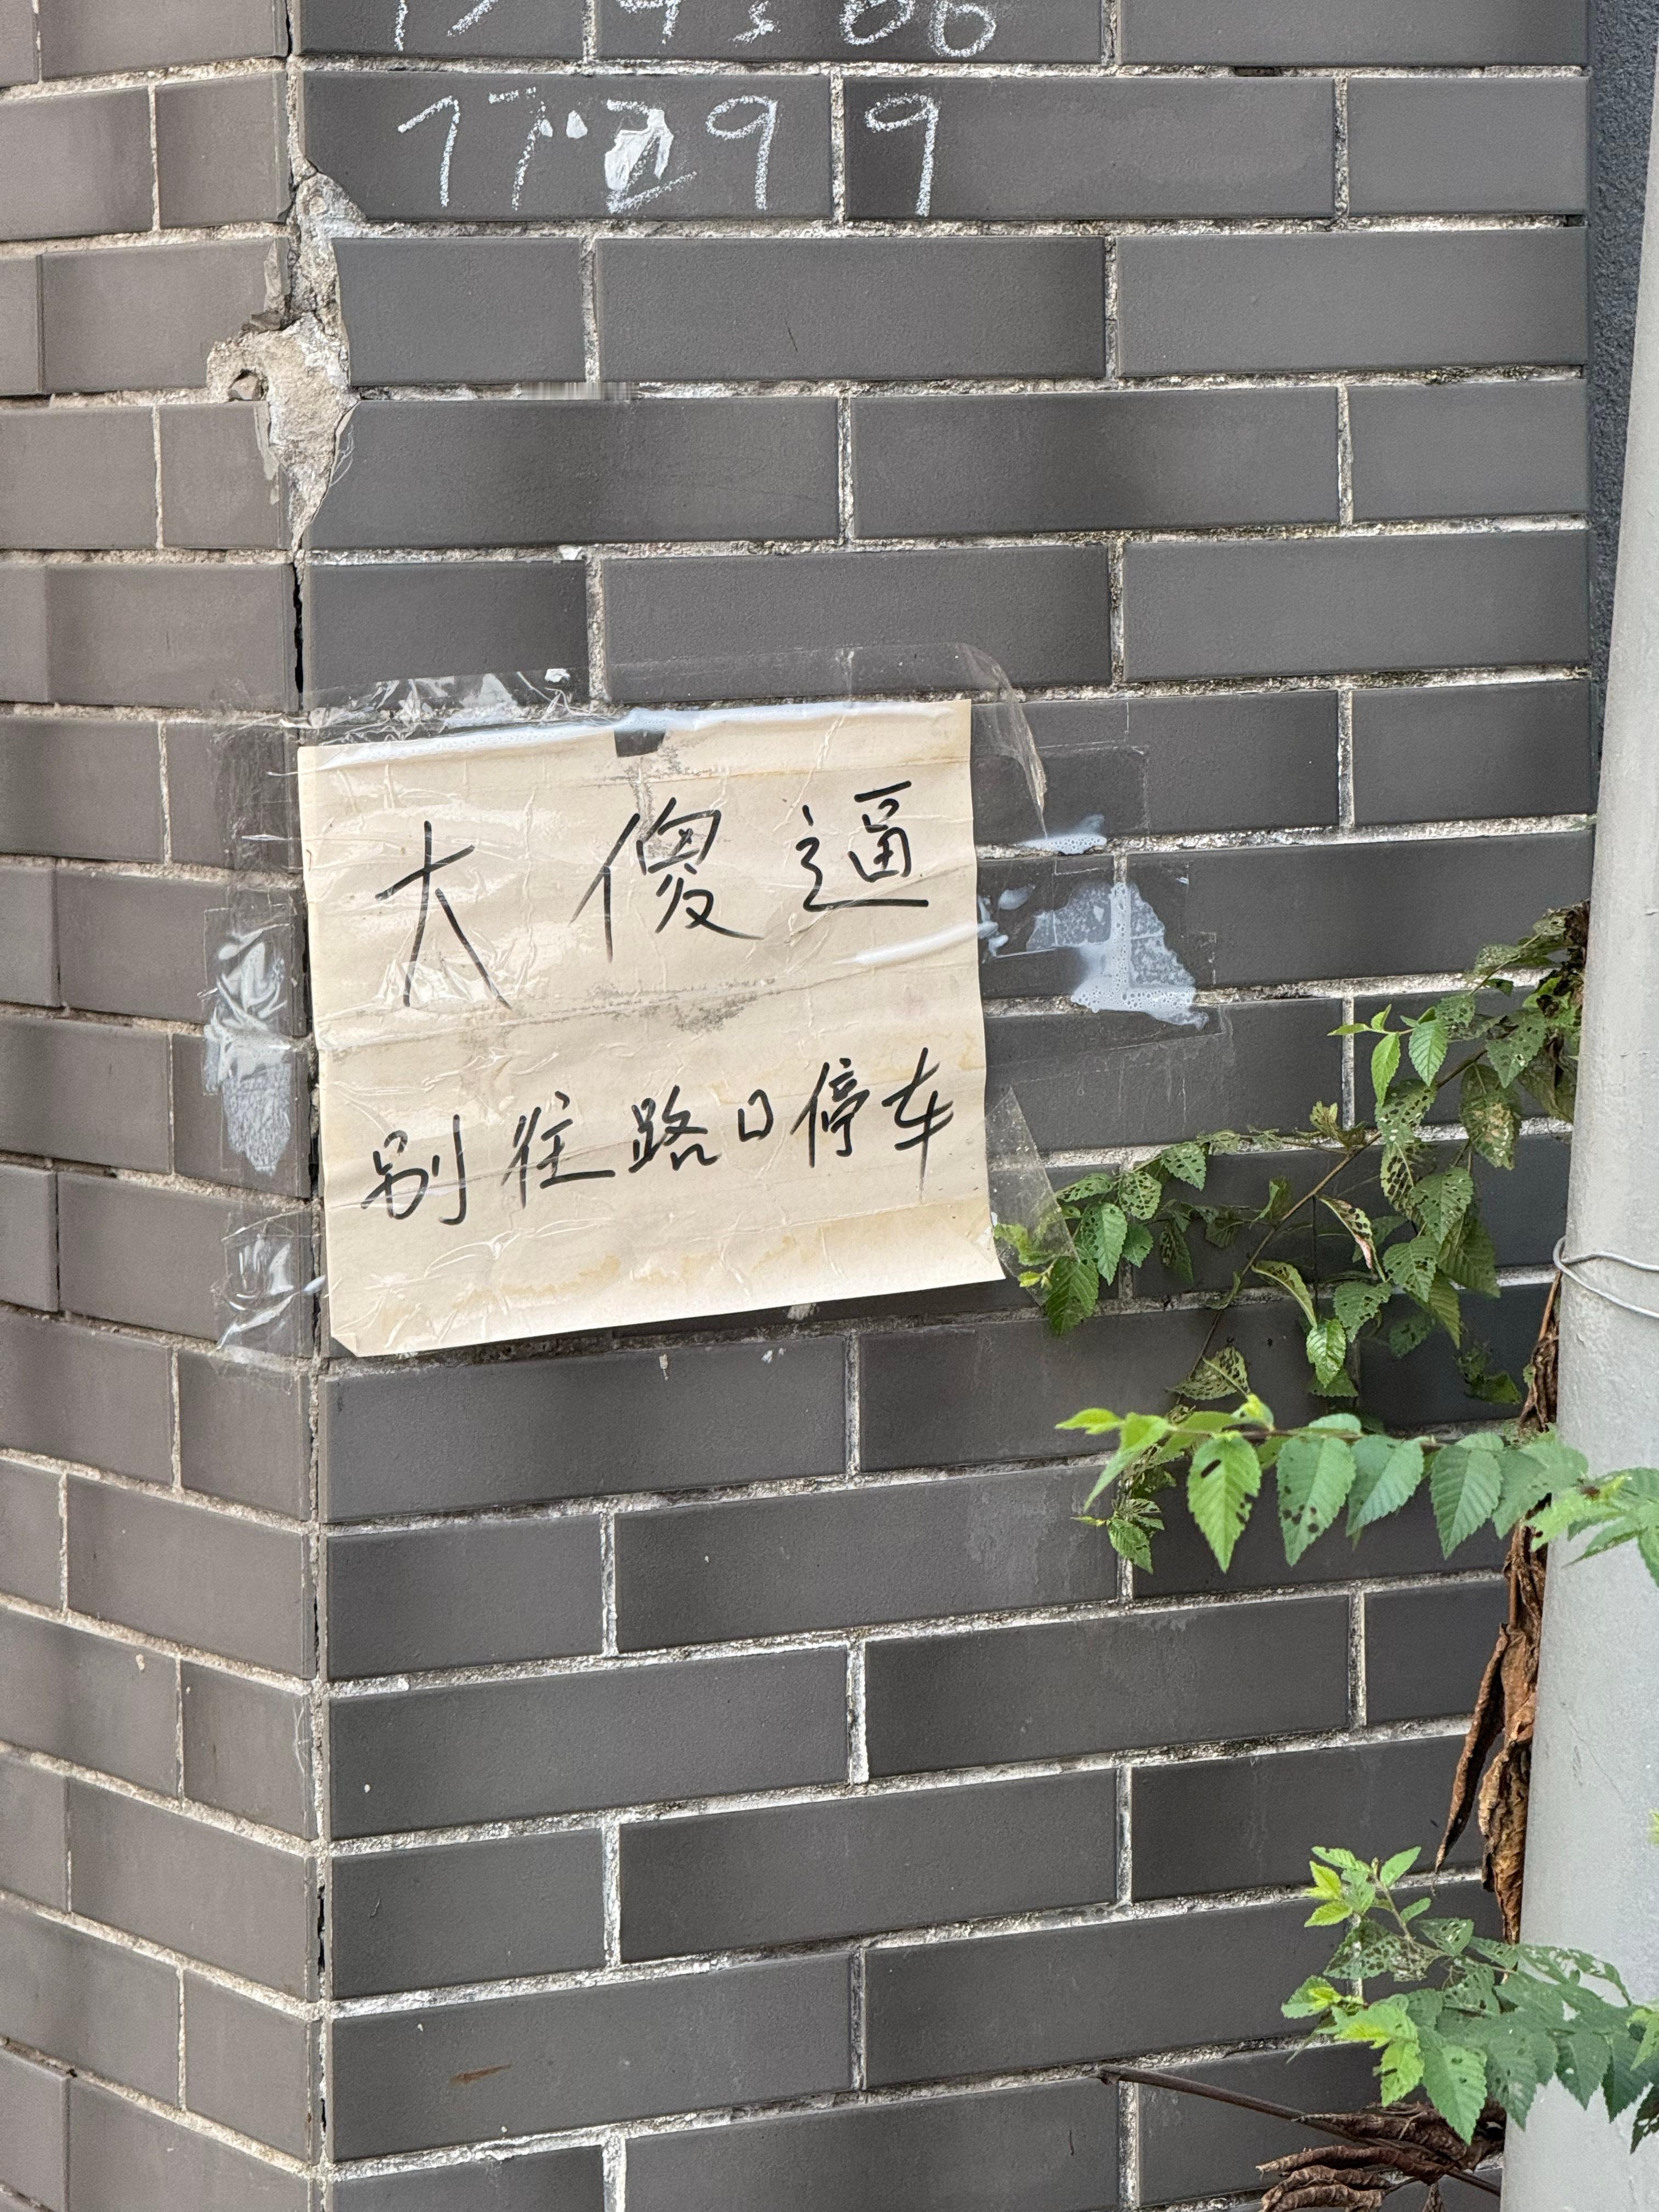 77.299
大傻逼
别往路口停车